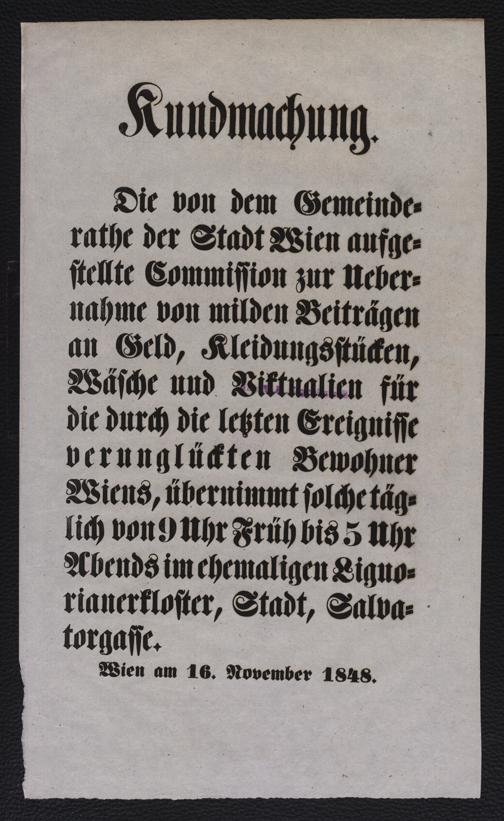 Kundmachung.
Die von dem Gemeinde-
rathe der Stadt Wien aufge-
stellte Commission zur Ueber-
nahme von milden Beiträgen
an Geld, Kleidungsstücken,
Wäsche und Viktualien für
die durch die letzten Ereignisse
verunglückten Bewohner
Wiens, übernimmt solche täg-
lich von 9 Uhr Früh bis 5 Uhr
Abends im ehemaligen Liguo-
rianerkloster, Stadt, Salva-
torgasse.
Wien am 16. November 1848.